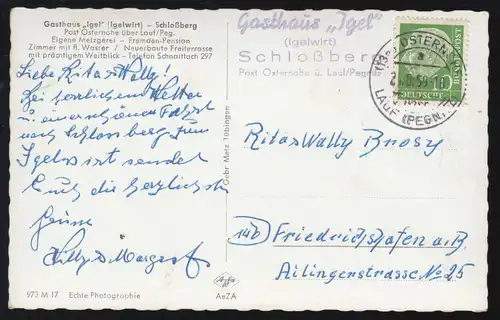 Gasthaus „Igel" (Igelwirt) - Schloßberg
Post Osternohe über Lauf/Peg.
Eigene Metzgerei - Fremden-Pension
Zimmer mit fl. Wasser / Neuerbaute Freiterrasse
mit prächtigem Weitblick - Telefon Schnaittach 297
Liebe Rita & Wally!
Bei herrlichem Wetter
u. einer schönen Fahrt
nach Schlossberg zum
Igelwirt sendet
Euch die herzlichsten
Grüsse
Willy & Margaret
973 M 17 Echte Photographie
Gebr. Metz Tübingen
Agfa
AeZA
Gasthaus „Igel"
(Igelwirt)
Schloßberg
Post Osternohe ü. Lauf/Pegnitz
OSTERNOHE
a
LAUF (PEGN.)
10
DEUTSCHE
BUNDESPOST
Rita & Wally Brosy
14b Friedrichshafen a. B.
Ailingerstrasse No 25